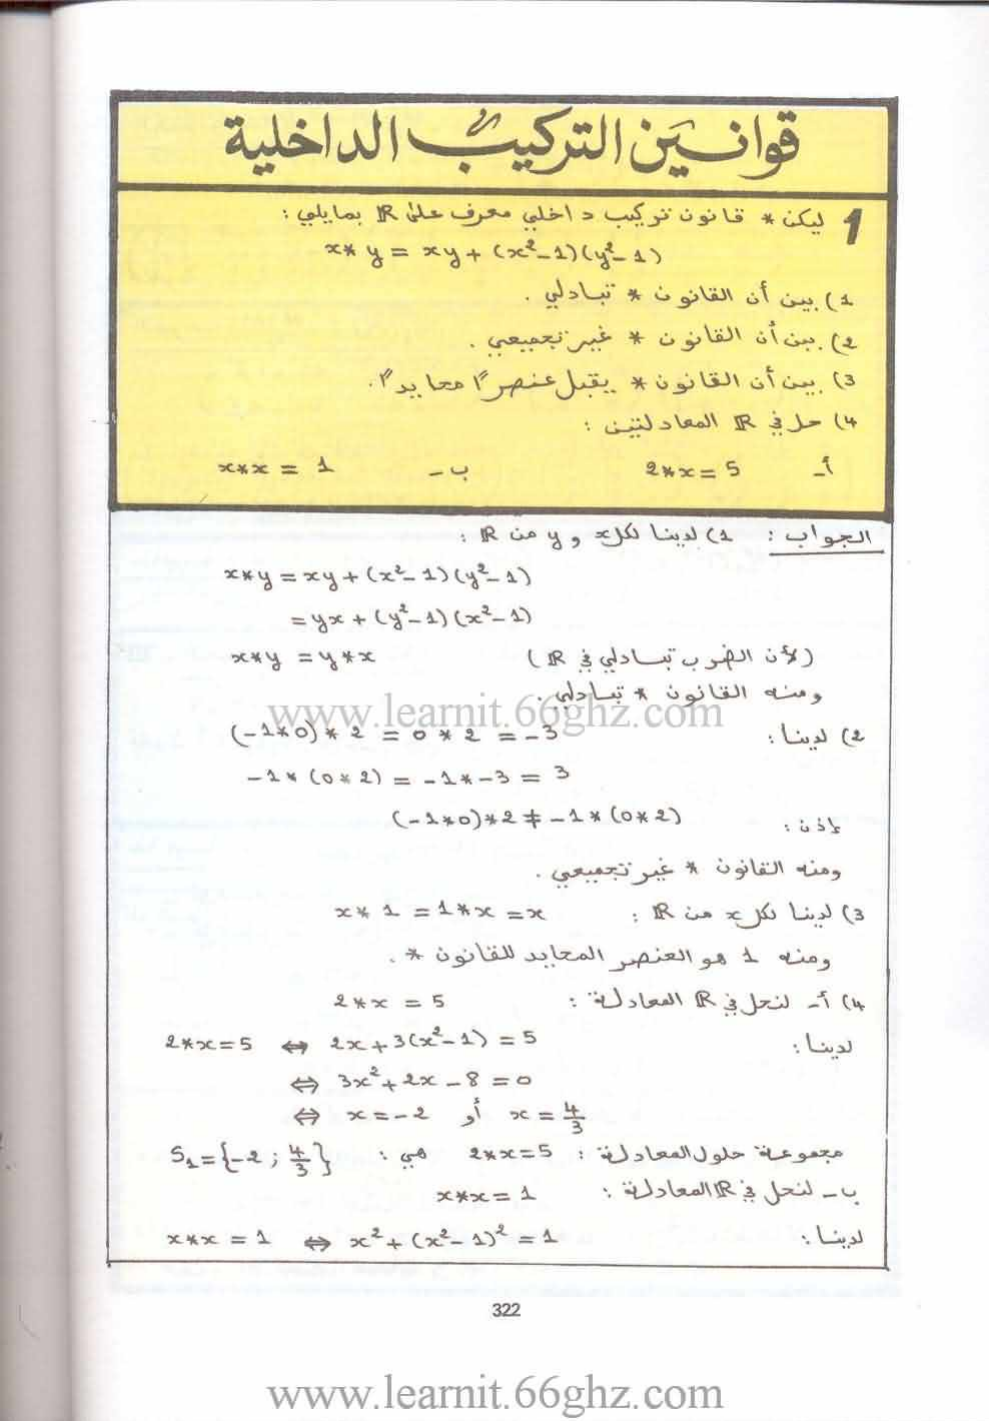 قوانين التركيب الداخلية
1 ليكن * قانون تركيب داخلي معرف على ℝ بمايلي :
x*y = xy + (x²-1)(y²-1)
1) بين أن القانون * تبادلي .
2) بين أن القانون * غير تجميعي .
3) بين أن القانون * يقبل عنصرًا محايدًا.
4) حل في ℝ المعادلتين :
أ- 2*x = 5 ب- x*x = 1
الجواب : 1) لدينا لكل x و y من ℝ :
x*y = xy + (x²-1)(y²-1)
= yx + (y²-1)(x²-1)
x*y = y*x (لأن الضرب تبادلي في ℝ)
ومنه القانون * تبادلي .
www.learnit.66ghz.com
2) لدينا : (-1*0)*2 = 0*2 = -3
-1*(0*2) = -1*-3 = 3
إذن : (-1*0)*2 ≠ -1*(0*2)
ومنه القانون * غير تجميعي .
3) لدينا لكل x من ℝ : x*1 = 1*x = x
ومنه 1 هو العنصر المحايد للقانون * .
4) أ- لنحل في ℝ المعادلة : 2*x = 5
لدينا : 2*x=5 ⇔ 2x+3(x²-1) = 5
⇔ 3x²+2x-8 = 0
⇔ x=-2 أو x = 4/3
مجموعة حلول المعادلة : 2*x=5 هي : S₁={-2 ; 4/3}
ب- لنحل في ℝ المعادلة : x*x = 1
لدينا : x*x = 1 ⇔ x²+(x²-1)² = 1
322
www.learnit.66ghz.com